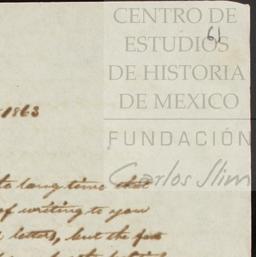 CENTRO DE
ESTUDIOS
DE HISTORIA
DE MEXICO
FUNDACIÓN
Carlos Slim
61
1863
long time that
of writing to you
letters, but the